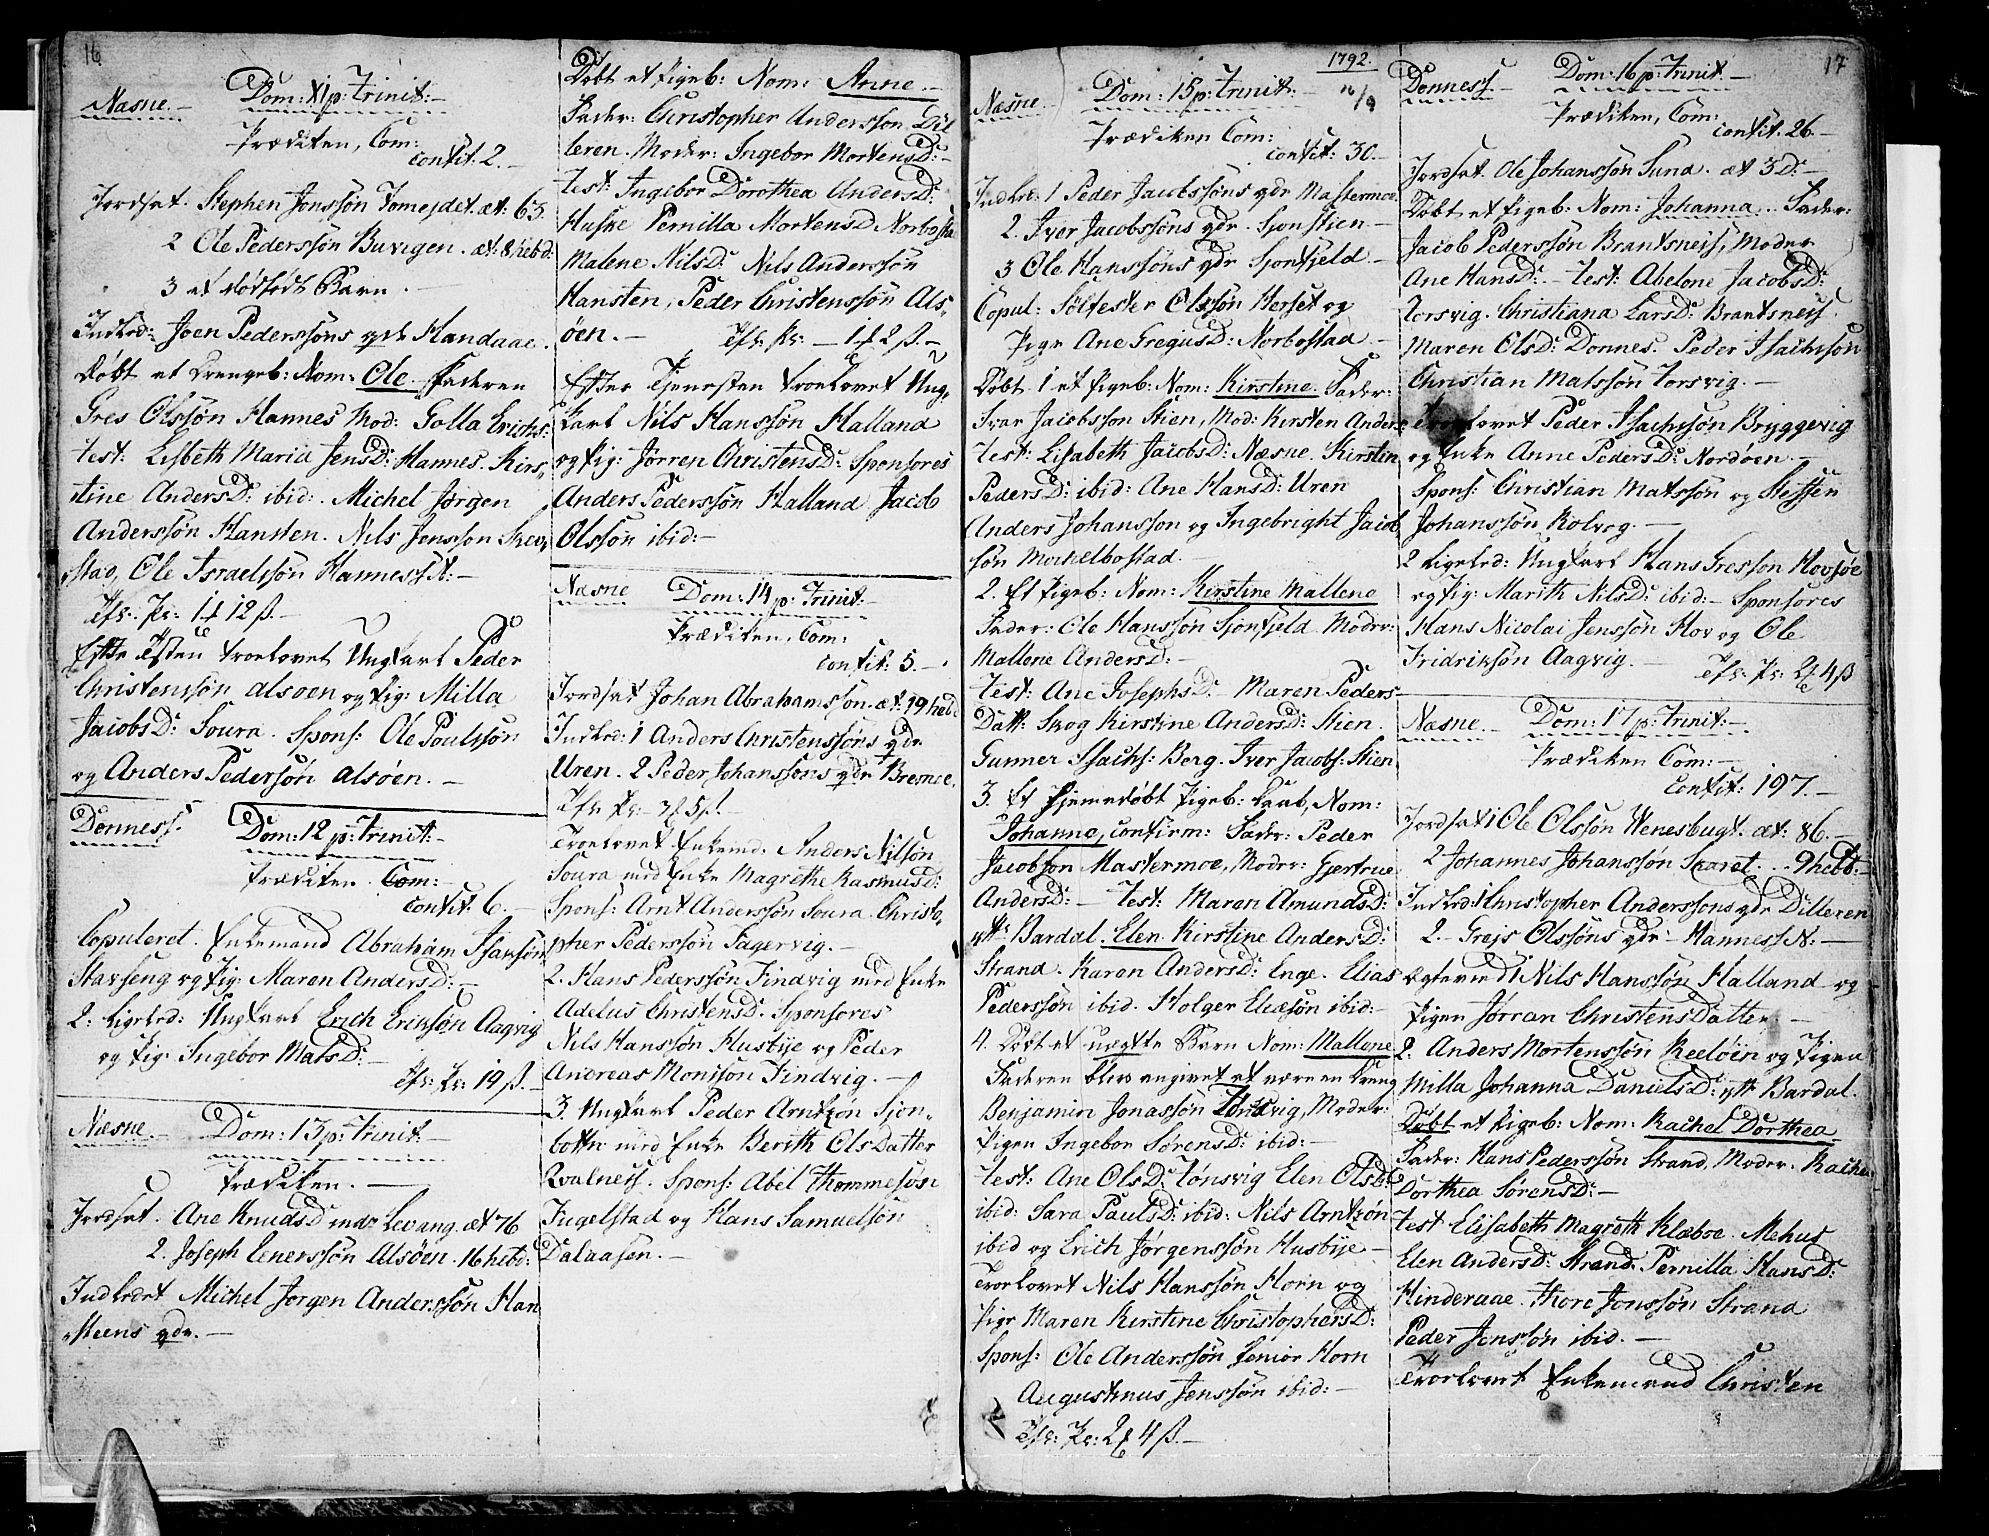 16
Næsne.- Dom: XI p: Trinit:-
Prædiken, Com:
Confit. 2.-
Jordsat. Stephen Jonssøn Tomejdet. æt. 63.
2 Ole Pederssøn Buvigen. æt: 8 hebd:
3 et dødfødt Barn.
Indled: Joen Pederssøns qde Handaae.
Døbt et Drengeb: Nom: Ole Faderen
Gres Olssøn Hannes Mod: Golla Erichs:
Test: Lisbeth Maria JensD: Hannes. Kirs-
tine AndersD: ibid: Michel Jørgen
Anderssøn Hansten. Nils Jonssøn
stad, Ole Israelssøn Hannes N:-
Ofr. Pr: 1 12 ß.-
Efter troelovet Ungkarl Peder
Christenssøn Alsøen og Pig: Milla
JacobsD: Soura. Spons: Ole Poulssøn
og Anders Pederssøn Alsøen.-
Dønness. Dom: 12 p: Trinit:-
Prædiken. Com:-
Confit: 6.-
Copuleret. Enkemand Abraham Isaksøn
Stavseng og Pig: Maren AndersD:-
2. ligeled: Ungkarl Erich Erikssøn Aagvig
og Pig: Ingebor MatsD:-
Ofr: Pr: 19 ß.-
Næsne.- Dom: 13 p: Trinit:-
Prædiken.-
Jordsat. Ane KnudsD indr Levang. æt 76
2. Joseph Enerssøn Alsøen. 16 hebd:
Indledet Michel Jørgen Anderssøn Han
steens qde.-
Døbt et Pigeb: Nom: Anne.-
Fader: Christopher Anderssøn Dil
leren. Moder: Ingebor MortensD:-
Test: Ingebor Dorothea AndersD:
Huske Pernilla MortensD Norbosta
Malene NilsD: Nils Anderssøn
Hansten, Peder Christenssøn Als-
øen.- Ofr. Pr:- 1 2 ß.-
Efter Tjenesten troelovet Ung-
karl Nils Hanssøn Halland
og Pig: Jørren ChristensD: Sponsores
Anders Pederssøn Halland Jacob
Olssøn ibid:-
Næsne Dom: 14 p: Trinit:-
Prædiken, Com:
Confit: 5.-
Jordsat Johan Abrahamssøn. æt: 19 hebd.
Indled: 1 Anders Christenssøns qde
Uren. 2 Peder Johanssøns qde Bresnee.
Ofr. Pr: 5 ß.
Troelovet Enkemd. Anders Nilssøn
Soura med Enke Magrethe RasmusD:
Spons: Arnt Anderssøn Soura. Christo-
pher Pederssøn Fagervig.-
2. Hans Pederssøn Findvig med Enke
Adelus ChristensD. Sponsores
Nils Hanssøn Husbye og Peder
Andreas Monssøn Findvig.-
3. Ungkarl Peder Arntzøn Sjon-
botten med Enke Berith Ols Datter
Qvalnes. Spons: Abel Thommesøn
Fugelstad og Hans Samuelsøn
Dalaasen.-
1792.
Næsne. Dom: 15 p: Trinit:- 16/9
Prædiken Com:
Confit: 30.-
Indled: 1 Peder Jacobssøns qde Mastermoe
2. Iver Jacobssøns qde. Sjonstien-
3 Ole Hanssøns qde Sjonfjeld.-
Copul: Sølfester Olssøn Herset og
Pige Ane GregusD: Norbostad.-
Døbt 1 et Pigeb: Nom: Kirstine. Fader:
Ivar Jacobssøn Stien, Mod: Kirsten Anders
Test: Lisabeth JacobsD: Næsne. Kirstin
PedersD: ibid: Ane HansD: Uren
Anders Johanssøn og Ingebright Jacob
søn Morkelbostad.-
2. Et Pigeb: Nom: Kirstine Mallene
Fader: Ole Hanssøn Sjonfjeld. Moder:
Mallene AndersD:-
Test: Ane JosephsD.- Maren Peders-
Datt: Skog Kirstine AndersD: Stien.
Gunner Isachs: Berg. Iver Jacobs: Stien
3. Et hjemmedøbt Pigeb: Daab, Nom:
Johanna, confirm: Fader: Peder
Jacobssøn Mastermoe, Moder: Gjertrue
AndersD:- Test: Maren AmundsD:
ytt: Bardal. Elen Kirstine AndersD:
Strand. Karen AndersD: Enge. Elias
Pederssøn ibid. Holger Eliæsøn ibid:-
4. Døbt et uægte Barn Nom: Mallene
Faderen blev angivet at være en Dreng
Benjamin Jonassøn Tonsvig, Moder:
Pigen Ingebor SørensD: ibid:-
Test: Ane OlsD: Tønsvig Elen OlsD:
ibid: Sara PaulsD: ibid: Nils Arntzøn
ibid og Erich Jørgenssøn Husbye-
Troelovet Nils Hanssøn Horn og
Pige Maren Kirstine ChristophersD:
Spons: Ole Anderssøn Senior Horn
Augustinus Jenssøn ibid:-
Ofr: Pr: 2 4 ß.-
17
Dønness.- Dom: 16 p: Trinit.-
Prædiken, Com:
Confit. 26.-
Jordsat. Ole Johanssøn Sund. æt 3 D:-
Døbt et Pigeb: Nom: Johanna. Fader:
Jacob Pederssøn Brantsneis, Moder
Ane HansD:- Test: Abelone JacobsD:
Torsvig. Christiana LarsD: Brantsneis.
Maren OlsD: Dønnes. Peder Isachssøn
Christian Matssøn Torsvig.-
Troelovet Peder Isachssøn Bryggevig
og Enke Anne PedersD: Nordøen.-
Spons: Christian Matssøn og Steffen
Johanssøn Kolvog.-
2 Ligeled: Ungkarl Hans Gressøn Hovsøe
og Pig: Marith NilsD: ibid:- Sponsores
Hans Nicolai Jenssøn Hov og Ole
Fridrikssøn Aagvig.- Ofr: Pr: 2 4 ß
Næsne.- Dom: 17 p: Trinit:-
Prædiken Com:-
Confit: 197.-
Jordsat 1 Ole Olssøn Wenesbugt. æt: 86.-
2 Johannes Johanssøn Skaret.- 9 hebd:-
Indled: 1 Christopher Anderssøns qde Dilleren
2.- Grejs Olssøns qde- Hannes N:-
Egteviet 1 Nils Hanssøn Halland og
Pigen Jørran Christens Datter-
2. Anders Mortenssøn Reeløen og Pigen
Milla Johanna DanielsD: ytt Bardal.
Døbt et Pigeb: Nom: Rachel Dorthea
Fader: Hans Pederssøn Strand, Moder. Rachel
Dorthea SørensD:-
Test Elisabeth Magreth Klæboe. Mehus
Elen AndersD: Strand. Pernilla HansD:
Hinderaae. Thore Jonssøn Strand
Peder Jenssøn ibid.-
Troelovet Enkemand Christen